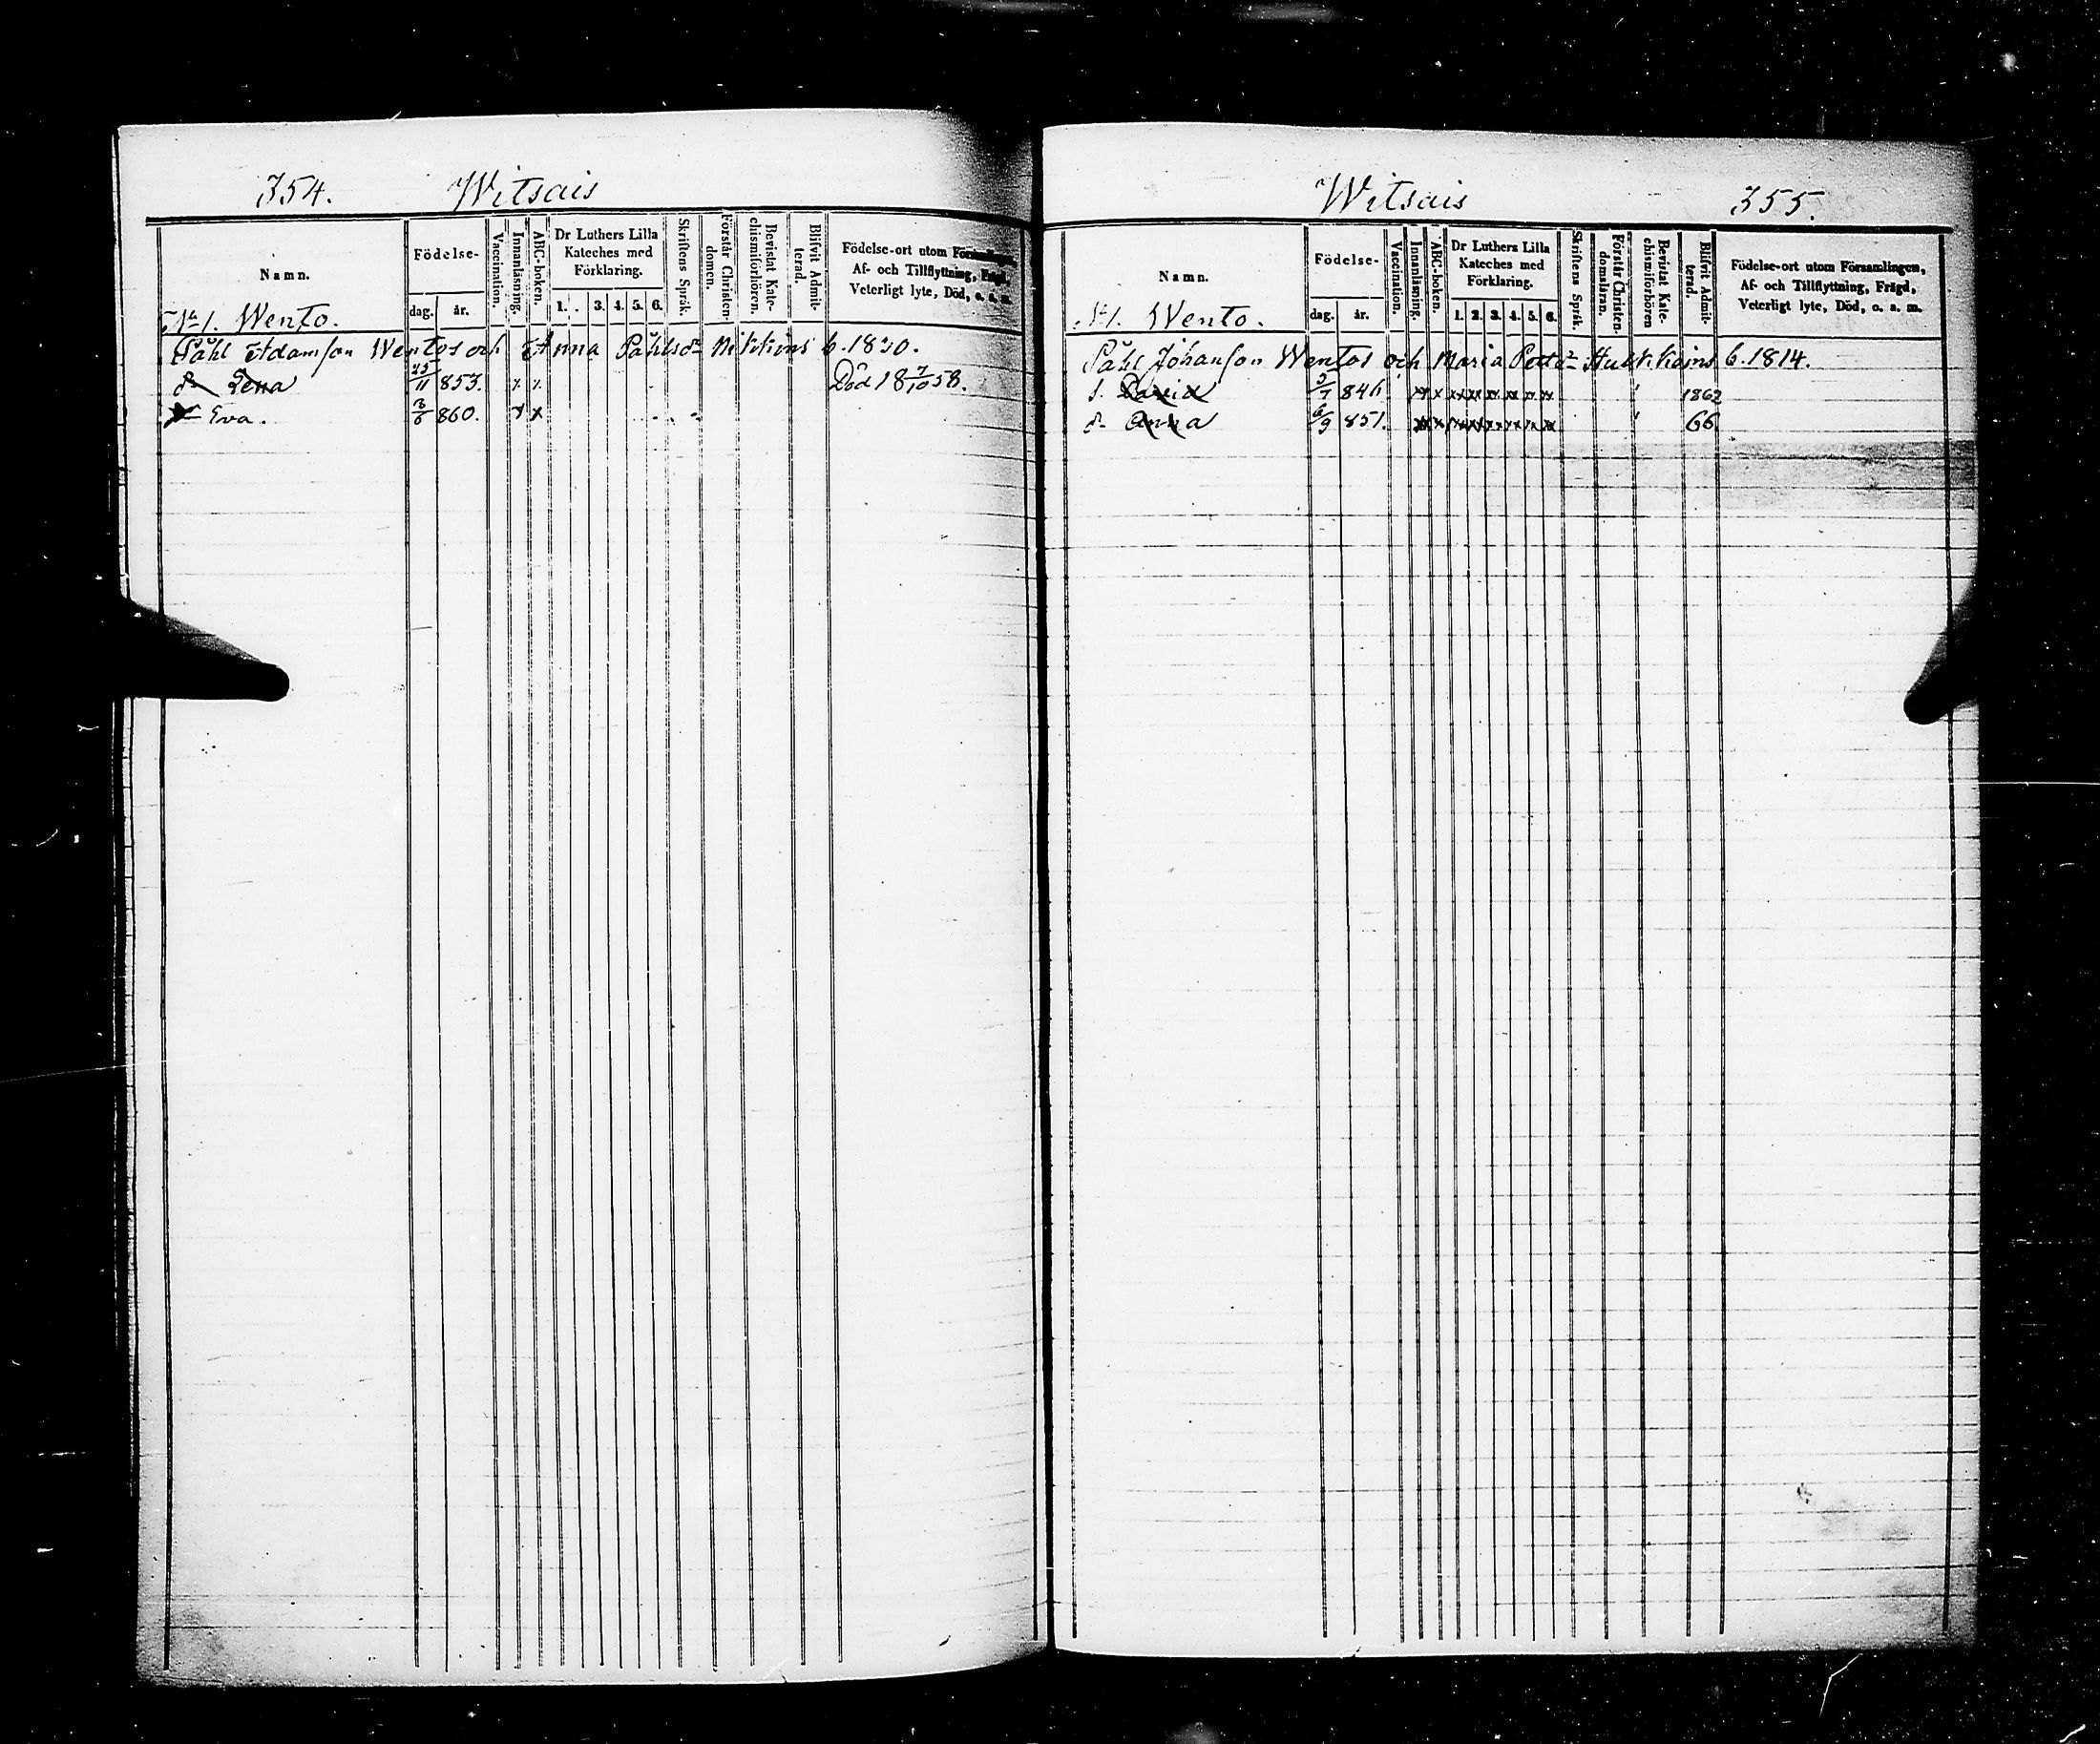 354. Witsais
Namn.
Födelse-
dag. år.
Vaccination.
Innanläsning.
ABC-boken.
Dr Luthers Lilla
Kateches med
Förklaring.
1. . 3. 4. 5. 6.
Skriftens Språk.
Förstår Christen-
domen.
Bevistat Kate-
chismiförhören.
Blifvit Admit-
terad.
Födelse-ort utom Församlingen,
Af- och Tillflyttning, Frägd,
Veterligt lyte, Död, o. s. m.
No 1. Wento.
Påhl Adamson Wentos och Anna Påhlsdr b. 1830.
d. Lena 25/11 853. x x Död 18 7/10 58.
Eva. 3/6 860. x x
Witsais 355.
Namn.
Födelse-
dag. år.
Vaccination.
Innanläsning.
ABC-boken.
Dr Luthers Lilla
Kateches med
Förklaring.
1. 2. 3. 4. 5. 6.
Skriftens Språk.
Förstår Christen-
domslaran.
Bevistat Kate-
chismiförhören
Blifvit Admit-
terad.
Födelse-ort utom Församlingen,
Af- och Tillflyttning, Frägd,
Veterligt lyte, Död, o. s. m.
No 1. Wento.
Påhl Johanson Wentos och Maria b. 1814.
s. David 5/7 846 1862
d. Anna 6/9 851. 66